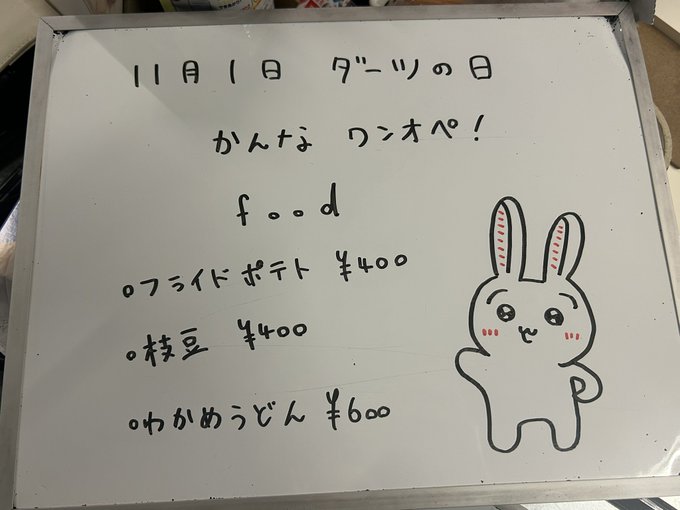 11月1日 ダーツの日
かんな ワンオペ!
food
○フライドポテト ¥400
○枝豆 ¥400
○わかめうどん ¥600